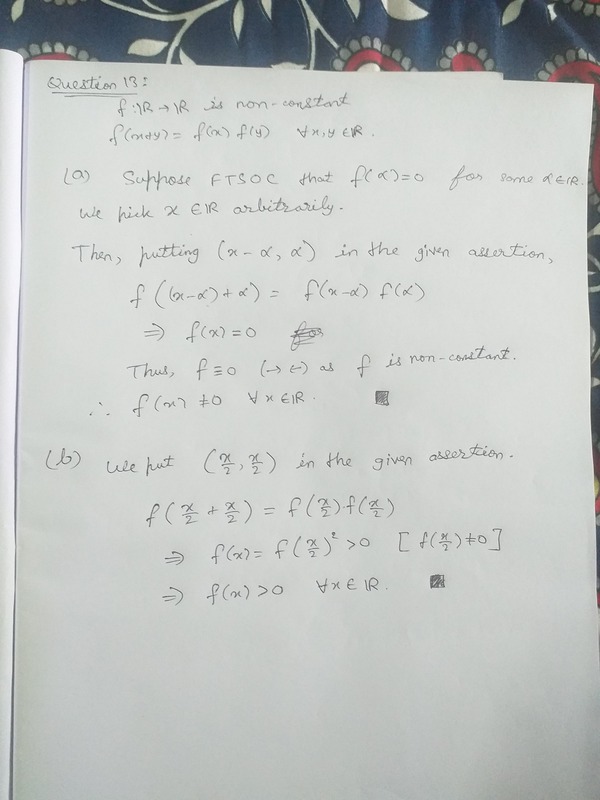 Question 13:
f: ℝ → ℝ is non-constant
f(x+y) = f(x) f(y) ∀ x, y ∈ ℝ.
(a) Suppose FTSOC that f(α)=0 for some α ∈ ℝ.
We pick x ∈ ℝ arbitrarily.
Then, putting (x-α, α) in the given assertion,
f((x-α)+α) = f(x-α) f(α)
⇒ f(x)=0
Thus, f≡0 (→←) as f is non-constant.
∴ f(x) ≠0 ∀ x ∈ ℝ. ■
(b) We put (x/2, x/2) in the given assertion.
f(x/2 + x/2) = f(x/2).f(x/2)
⇒ f(x) = f(x/2)² >0 [f(x/2) ≠0]
⇒ f(x) >0 ∀x ∈ ℝ. ■